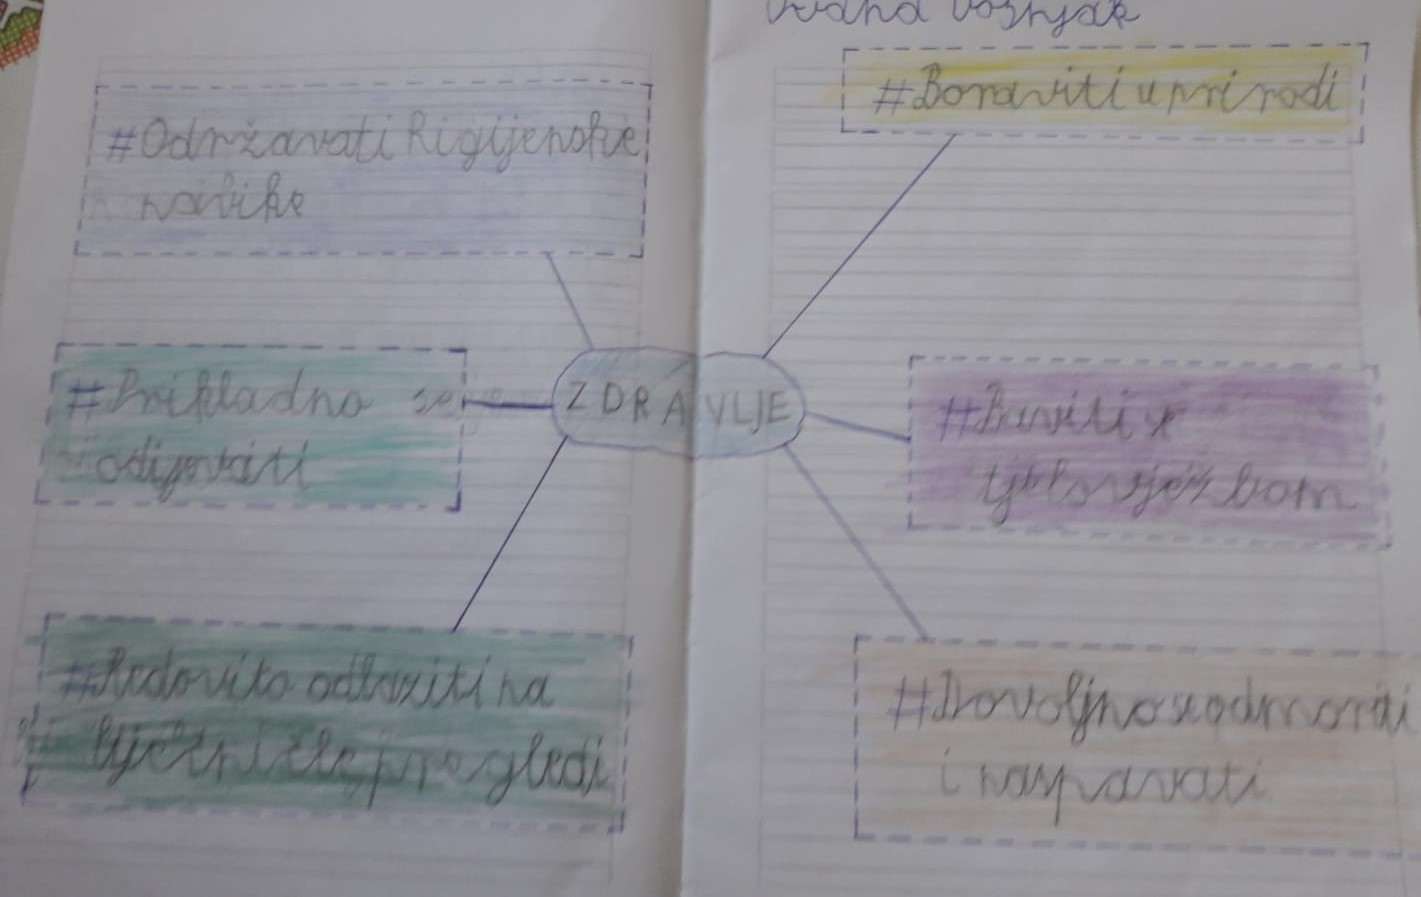 Vošnjak
#Održavati higijenske
navike
#Boraviti u prirodi
#Prikladno se
odijevati
ZDRAVLJE
#Baviti se
tjelovježbom
#Redovito odlaziti na
liječničke pregledi
#Dovoljno se odmoriti
i naspavati